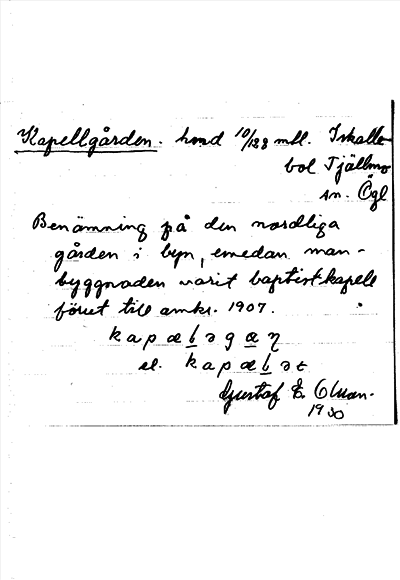 Kapellgården. hmd 10/128 mtl. Iskalle-
bol Tjällmo
sn. Ögl
Benämning på den nordliga
gården i byn, emedan man-
byggnaden varit baptistkapell
förut till omkr. 1907.
kapælɘgæŋ
el. kapælɘt
Gustaf E. Olsson.
1930